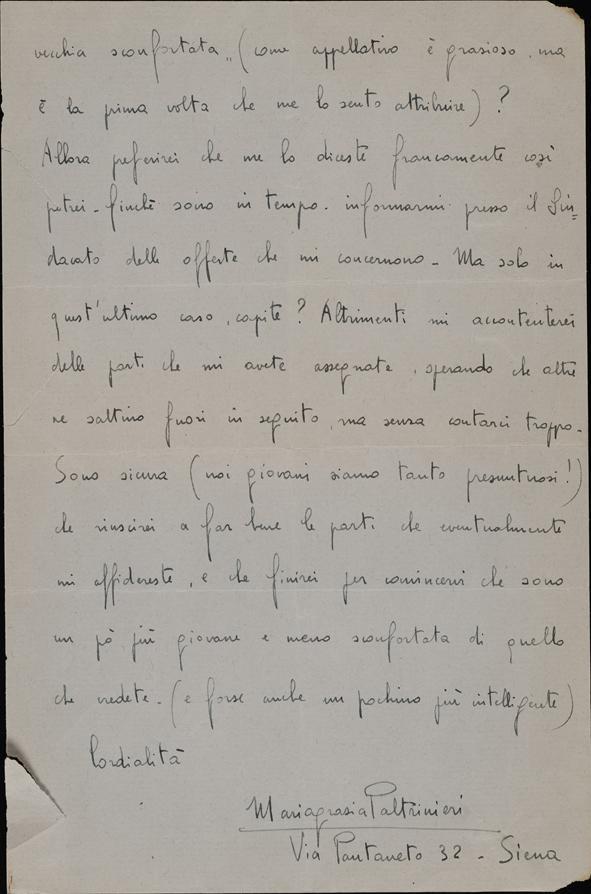 vecchia sconfortata„ (come appellativo è grazioso, ma
è la prima volta che me lo sento attribuire) ?
Allora preferirei che me lo diceste francamente così
potrei - finchè sono in tempo - informarmi presso il Sin=
dacato delle offerte che mi concernono - Ma solo in
quest'ultimo caso, capite ? Altrimenti mi accontenterei
delle parti che mi avete assegnate, sperando che altre
ne saltino fuori in seguito, ma senza contarci troppo -
Sono sicura (noi giovani siamo tanto presuntuosi!)
che riuscirei a far bene le parti che eventualmente
mi affidereste, e che finirei per convincervi che sono
un pò più giovane e meno sconfortata di quello
che credete - (e forse anche un pochino più intelligente)
Cordialità
Mariagrazia Paltrinieri
Via Pantaneto 32 - Siena